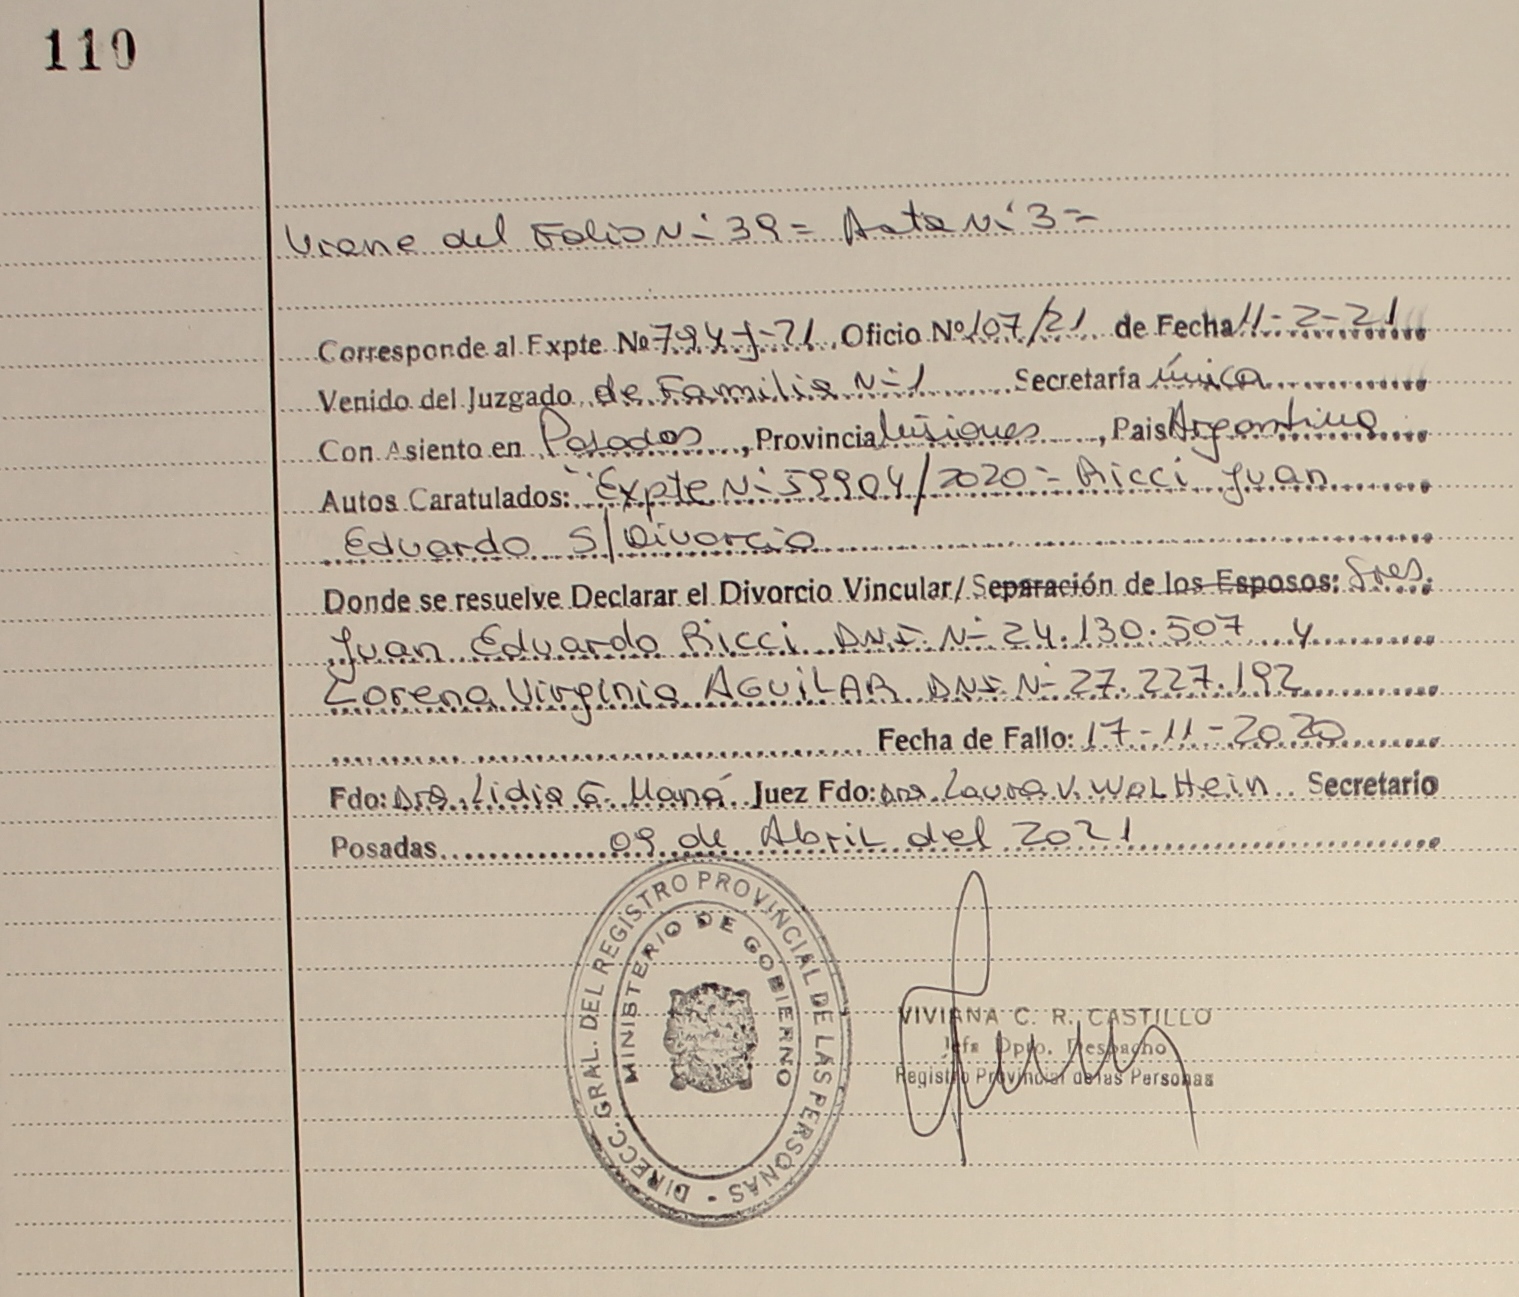 110
Viene del Folio Nº 39 = Acta Nº 3 =
Corresponde al Expte Nº 794-J-21 Oficio Nº 107/21 de Fecha 11-2-21
Venido del Juzgado de Familia Nº 1 Secretaría Única
Con Asiento en Posadas, Provincia Misiones, Pais Argentina
Autos Caratulados: "Expte Nº 59904/2020 = Ricci Juan
Eduardo S/Divorcio
Donde se resuelve Declarar el Divorcio Vincular/ Separación de los Esposos: Sres.
Juan Eduardo Ricci DNI. Nº 24.130.507 y
Lorena Virginia AGUILAR DNI Nº 27.227.192
Fecha de Fallo: 17-11-2020
Fdo: Dra. Lidia Maná Juez Fdo: Dra. Laura V. WalHein Secretario
Posadas 09 de Abril del 2021
DIRECC. GRAL. DEL REGISTRO PROVINCIAL DE LAS PERSONAS
MINISTERIO DE GOBIERNO
VIVIANA C. R. CASTILLO
Jefa Dpto. Despacho
Registro Provincial de las Personas